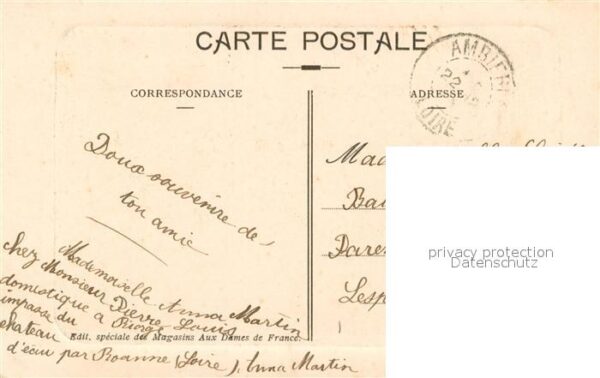 CARTE POSTALE
CORRESPONDANCE
ADRESSE
AMBIERL
22
LOIRE
Doux souvenire de
ton amie
Mademoiselle Anna Martin
chez Monsieur Pierre Louis
domestique a Riorge
impasse du
chateau
d'écu par Roanne (Loire), Anna Martin
Edit. spéciale des Magasins Aux Dames de France.
Mad
Bau
Pare
Lesp
privacy protection
Datenschutz